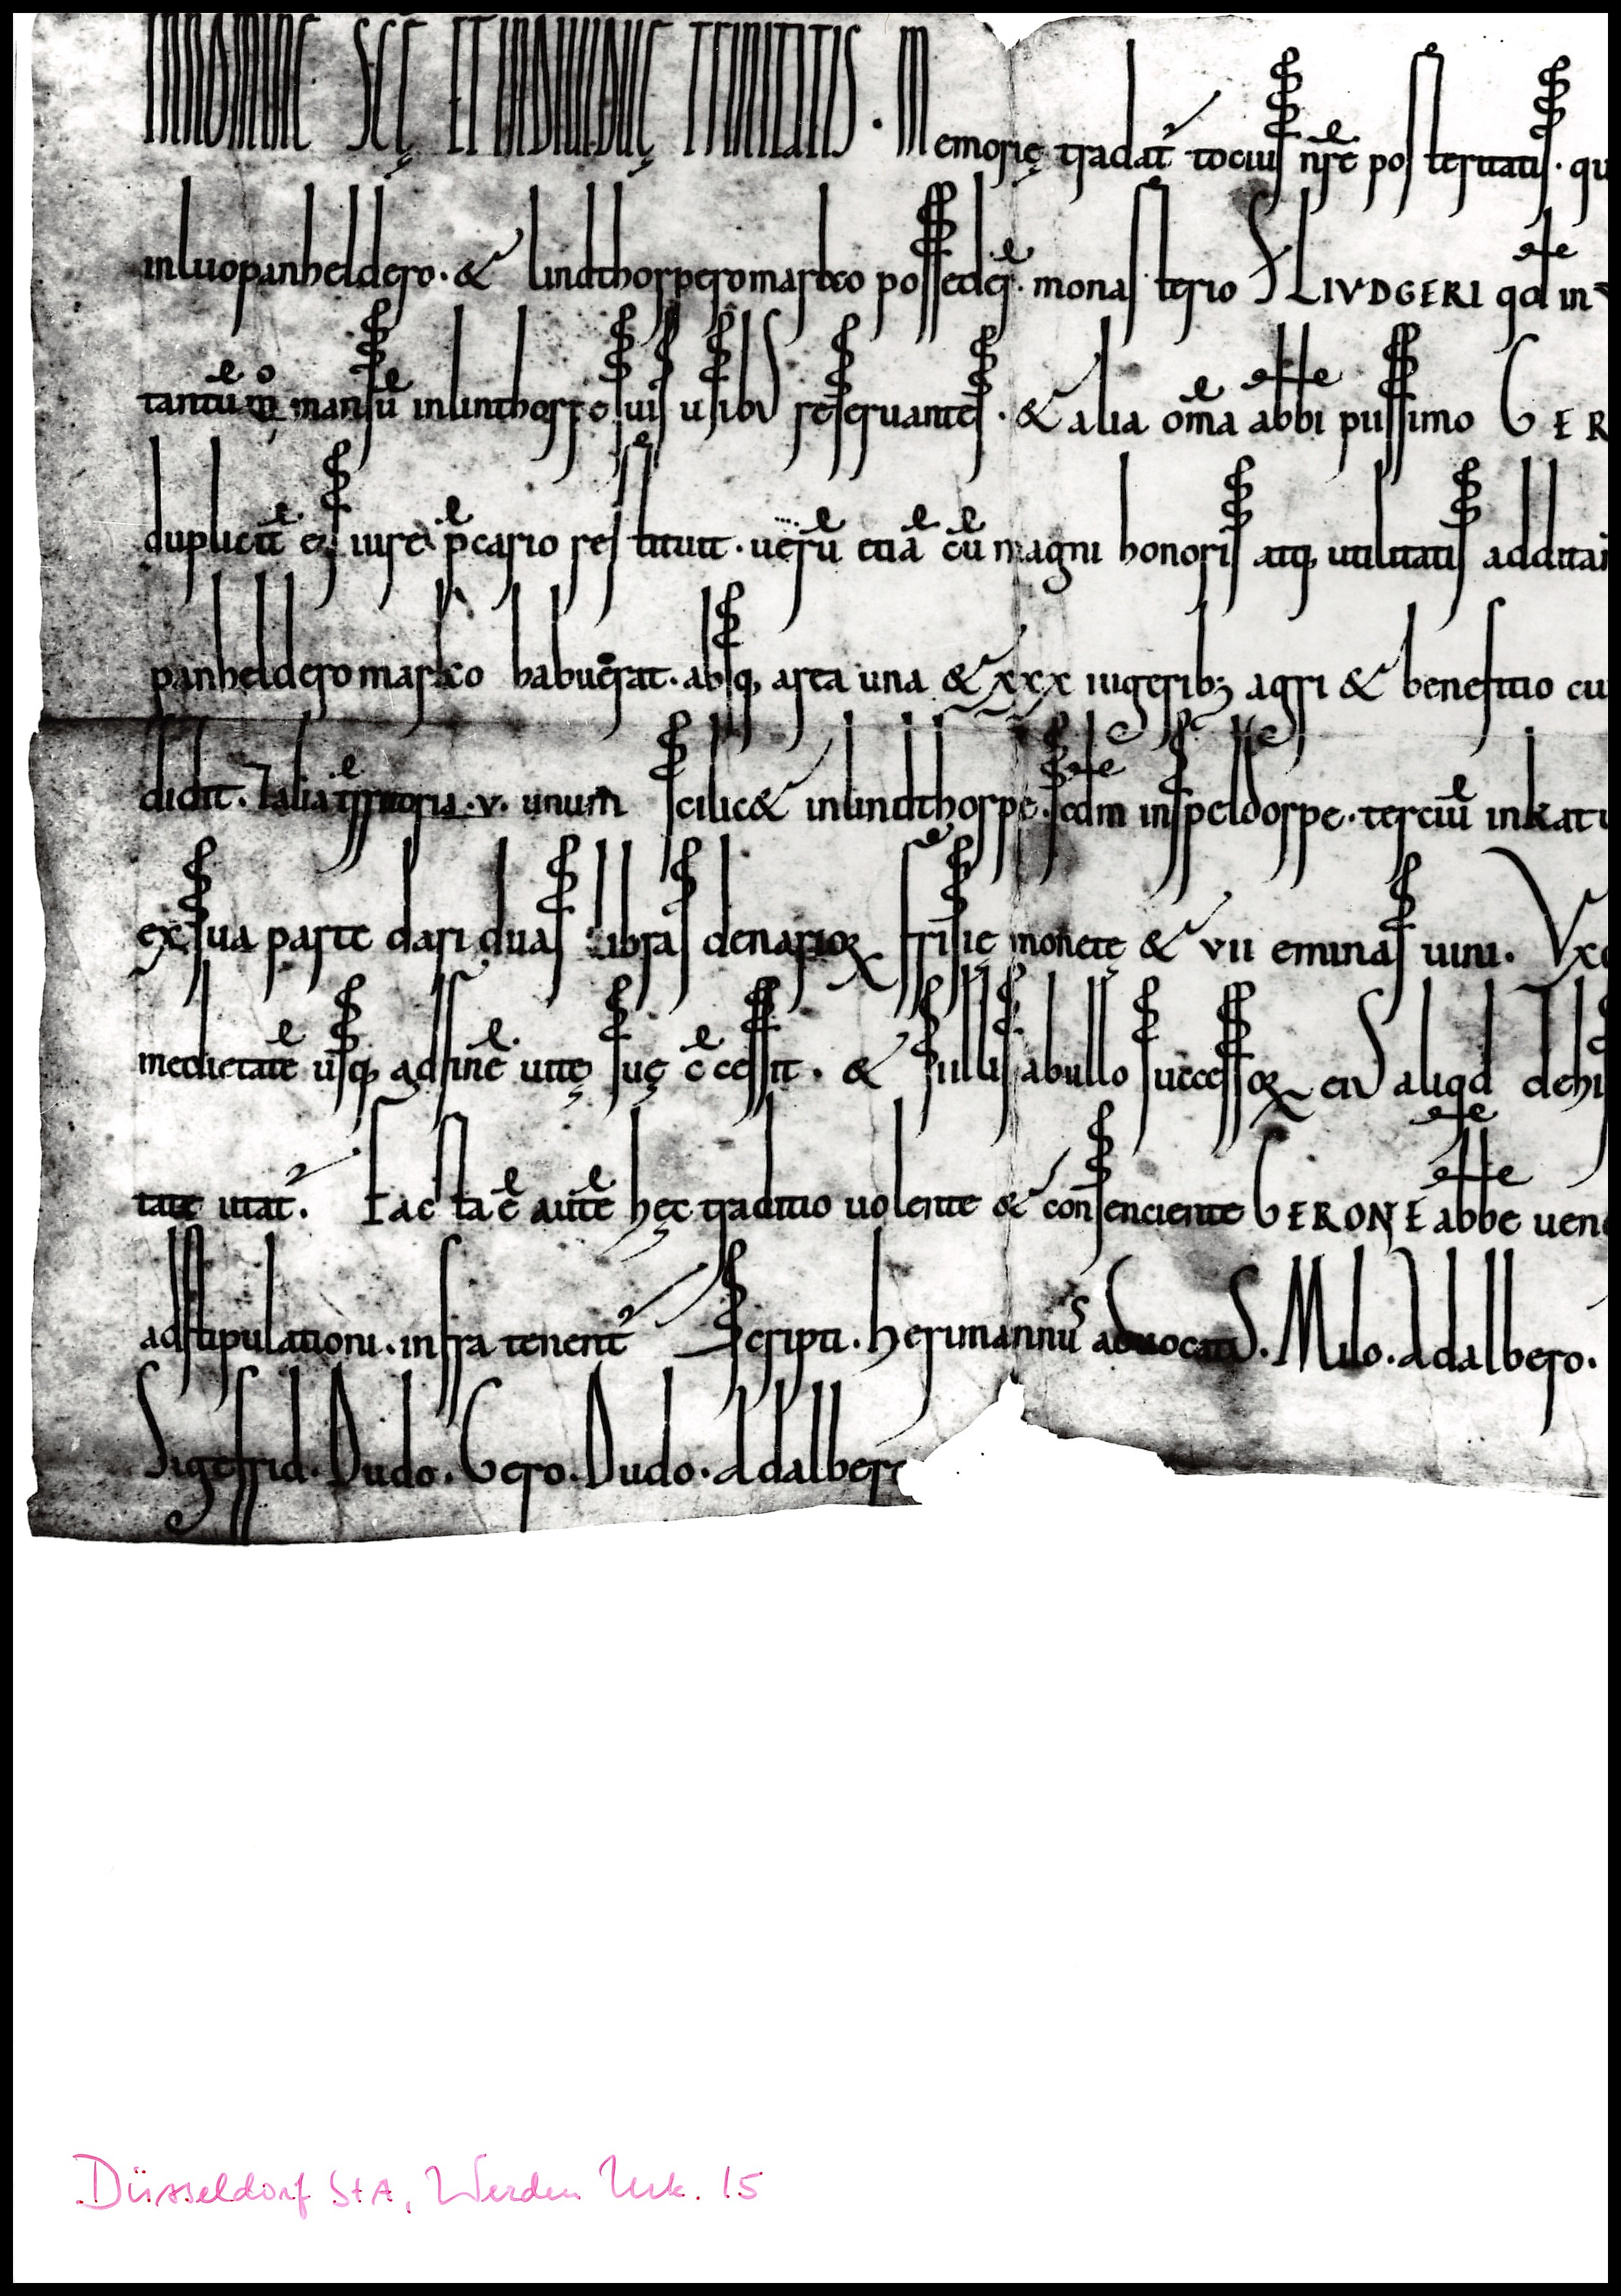 IN NOMINE SCĘ ET INDIVIDUĘ TRINITATIS. Memorię tradat̄ tocius nr̄ę posteritatis. qu
in luopanheldero. & lindthorperomarko posseder̄. monasterio S LIVDGERI qd in
tantū mansū in linthorpe suis usibus reseruantes. & alia om̄a abbi piissimo GER
duplicit̄ ei iure p̄cario restituit. uerū etiā cū magni honoris atq, utilitatis additai
panhelderomarko habuerat. absq, area una & xxx iugerib; agri & benefitio cu
didit. Talia territoria .v. unum scilic& in lindthorpe. sedm in speldorpe. terciū in kat
ex sua parte dari duas libras denarioꝝ frisię monetę & vii eminas uini. Vxo
medietatē usq, ad finē uitę suę c̄cessit. & si illis ab ullo successoꝝ eius aliqd dehi
utat̄. Facta ē autē hęc traditio uolente & consenciente GERONE abbe uen
adstipulationi. infra tenent̄ Scripti. herimannus aduocatus. Milo. Adalbero.
Sigefrid. Dudo. Gero. Dudo. Adalber
Düsseldorf StA, Werden Urk. 15